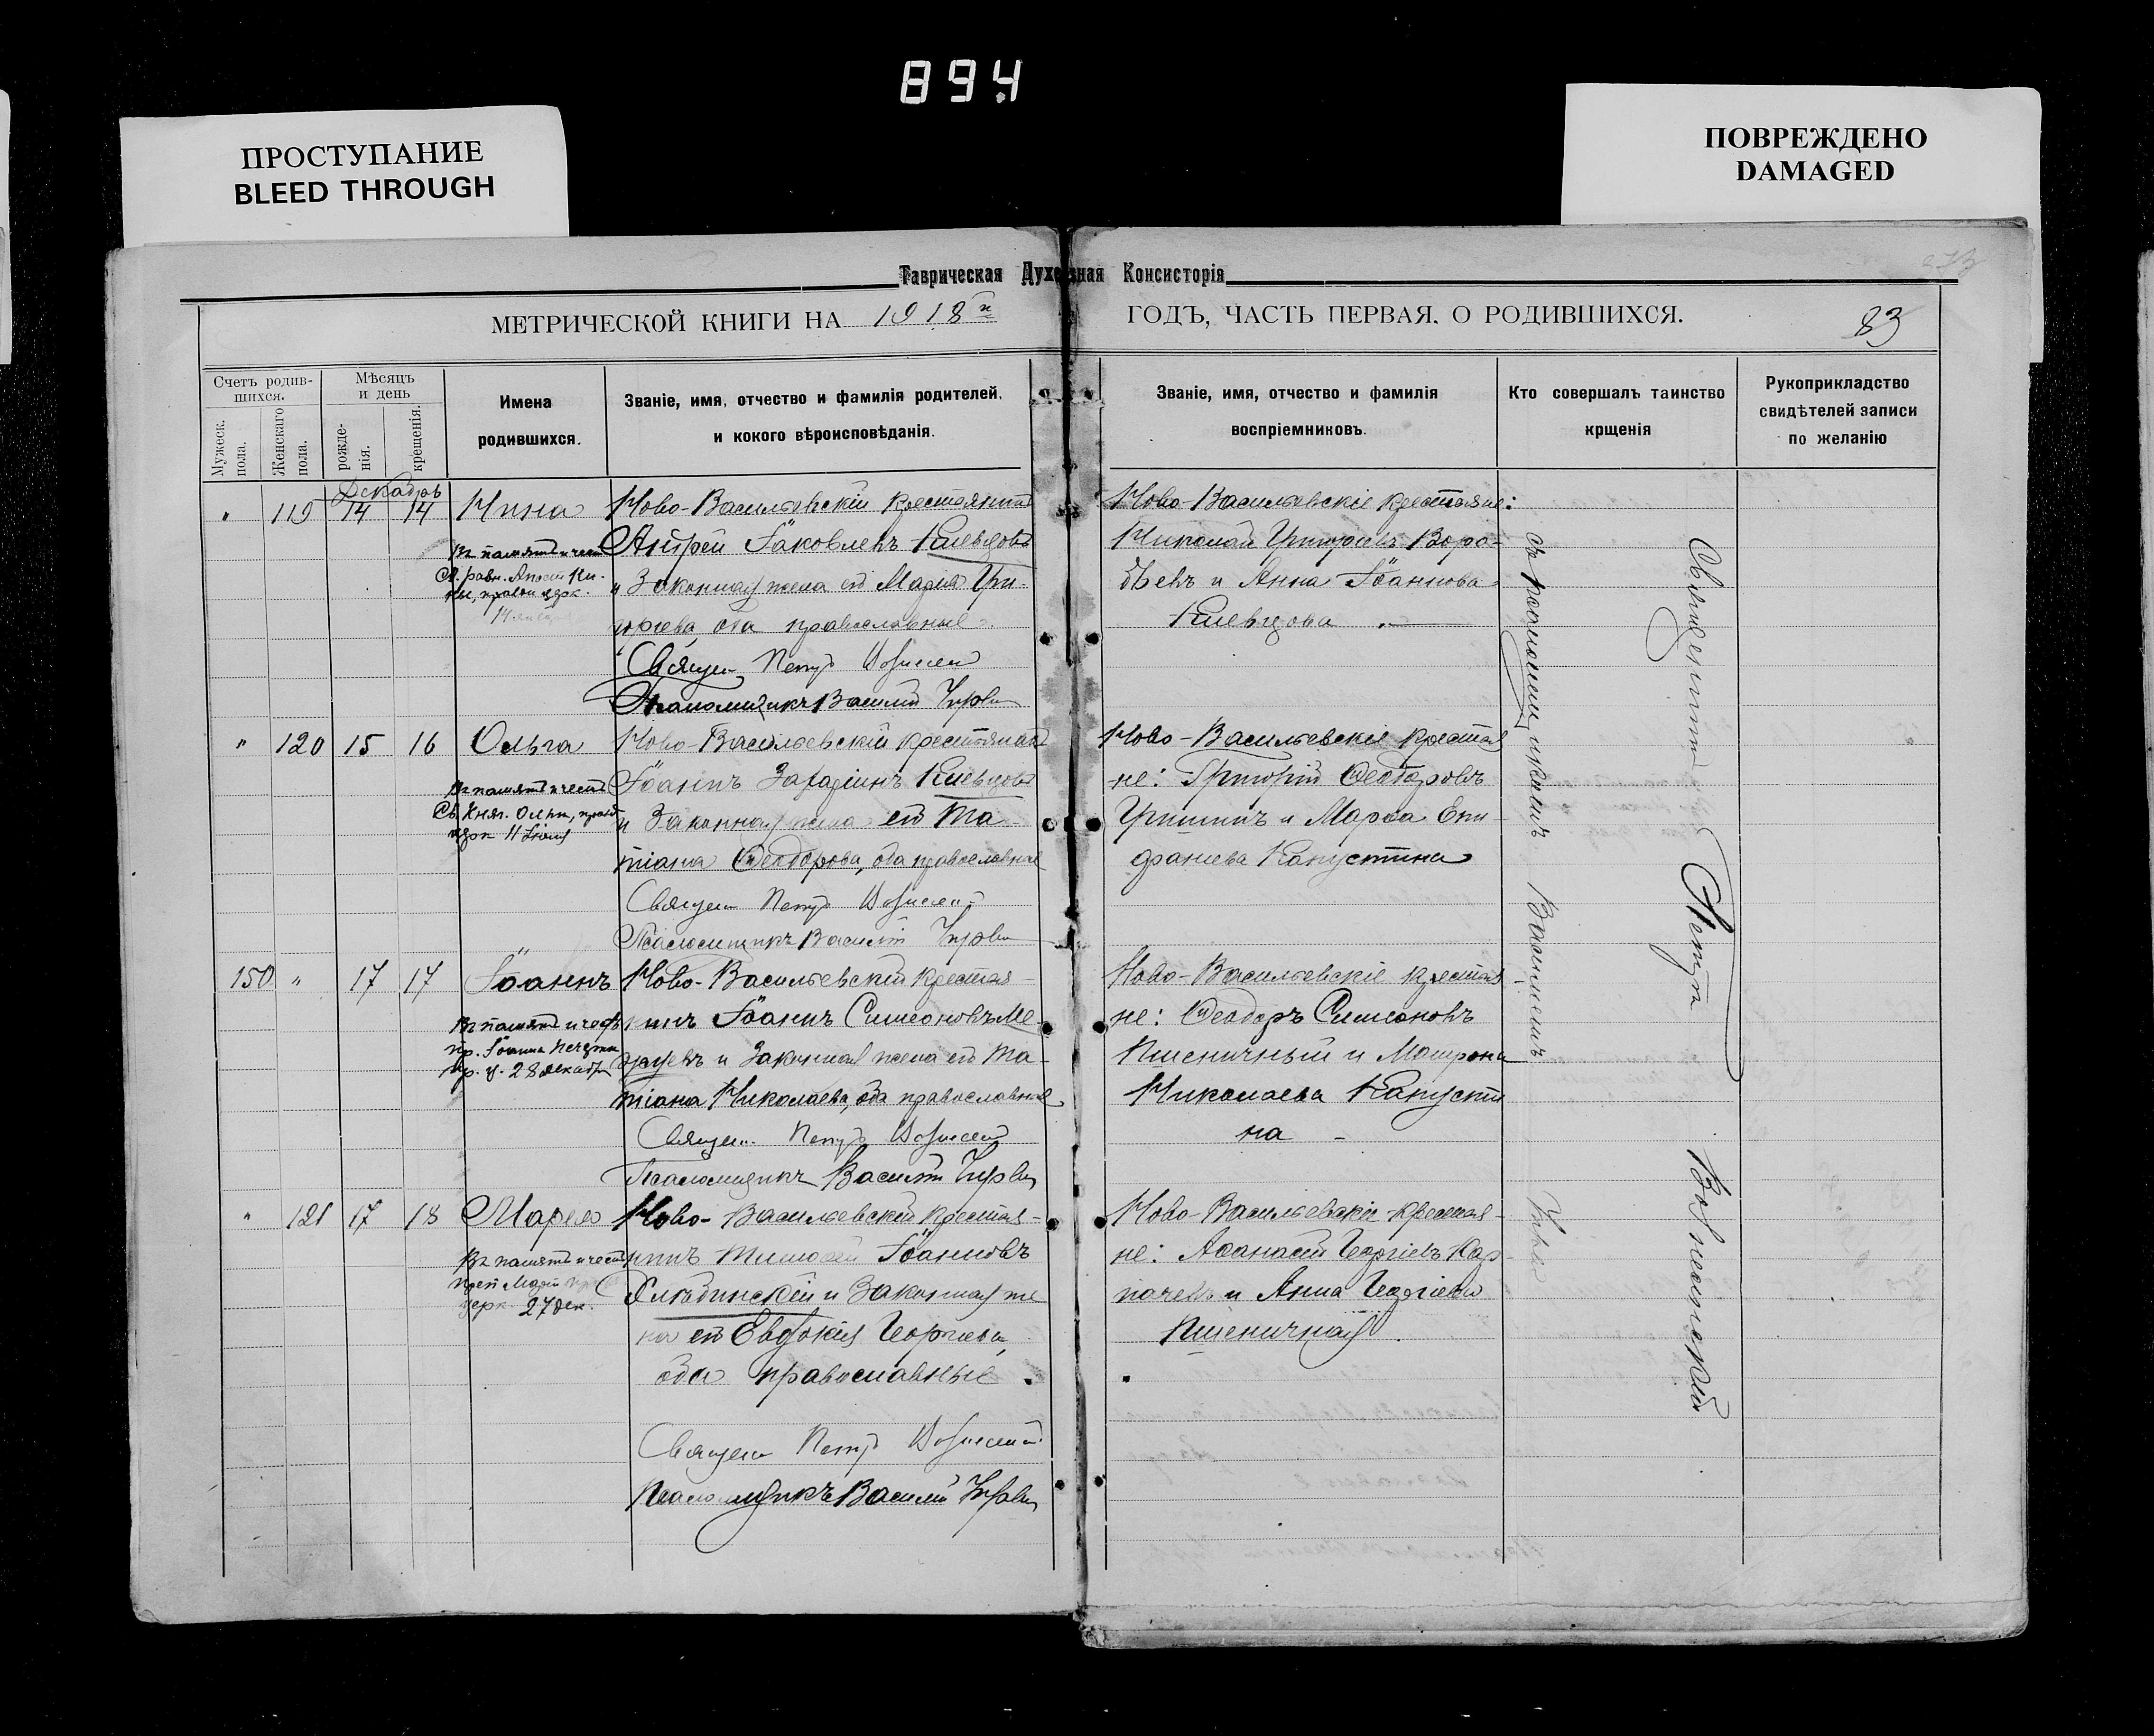 894
ПРОСТУПАНИЕ
BLEED THROUGH
ПОВРЕЖДЕНО
DAMAGED
Таврическая Духовная Консисторія
МЕТРИЧЕСКОЙ КНИГИ НА 1918й ГОДЪ, ЧАСТЬ ПЕРВАЯ, О РОДИВШИХСЯ.
83
Счетъ родившихся.
Мужеск. пола.
Женскаго пола.
Мѣсяцъ и день
рожденія.
крещенія.
Имена
родившихся.
Званіе, имя, отчество и фамилія родителей,
и кокого вѣроисповѣданія.
Званіе, имя, отчество и фамилія
воспріемниковъ.
Кто совершалъ таинство
крщенія
Рукоприкладство
свидѣтелей записи
по желанію
Декабрь
" 119 14 14 Нина
Въ память и честь
Св. равн. Апост. Ни-
ны, празд. церк.
Ново-Васильевскій крестьянинъ
Андрей Іаковлевъ Киевцовъ
и Законная жена его Марія Гри-
горіева, оба православные
Священ. Петръ
Псаломщикъ Василій
Ново-Васильевскіе крестьяне:
Николай Григорьевъ Воро-
бьевъ и Анна Іоаннова
Киевцова
" 120 15 16 Ольга
Въ память и честь
Св. Княг. Ольги, празд.
церк. 11 Іюля
Ново-Васильевскій крестьянинъ
Іоаннъ Захаріинъ Киевцовъ
и Законная жена его Та-
тіана Ѳеодорова, оба православные
Священ. Петръ
Псаломщикъ Василій
Ново-Васильевскіе крестья
не: Григорій Ѳеодоровъ
Гришинъ и Марѳа Епи-
фаніева Капустина
150 " 17 17 Іоаннъ
Въ память и честь
пр. Іоанна
пр. ц. 28 декабря
Ново-Васильевскій крестья-
нинъ Іоаннъ Симеоновъ Ме-
и Законная жена его Та-
тіана Николаева, оба православные
Священ. Петръ
Псаломщикъ Василій
Ново-Васильевскіе крестья-
не: Ѳеодоръ Симеоновъ
Пшеничный и Матрона
Николаева Капусти
на
" 121 17 18 Марія
Въ память и честь
церк. 27 дек.
Ново-Васильевскій крестья-
нинъ Тимоѳей Іоанновъ
и Законная же
на его Евдокія Георгіева,
оба православные.
Священ. Петръ
Псаломщикъ Василій
Ново-Васильевскіе крестья-
не: Аѳанасій Георгіевъ Кар-
пачевъ и Анна Георгіева
Пшеничная
Священникъ Петръ Вознесенскій
съ псаломщикомъ Василіемъ